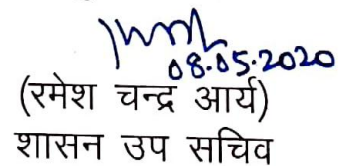 08.05.2020
(रमेश चन्द्र आर्य)
शासन उप सचिव